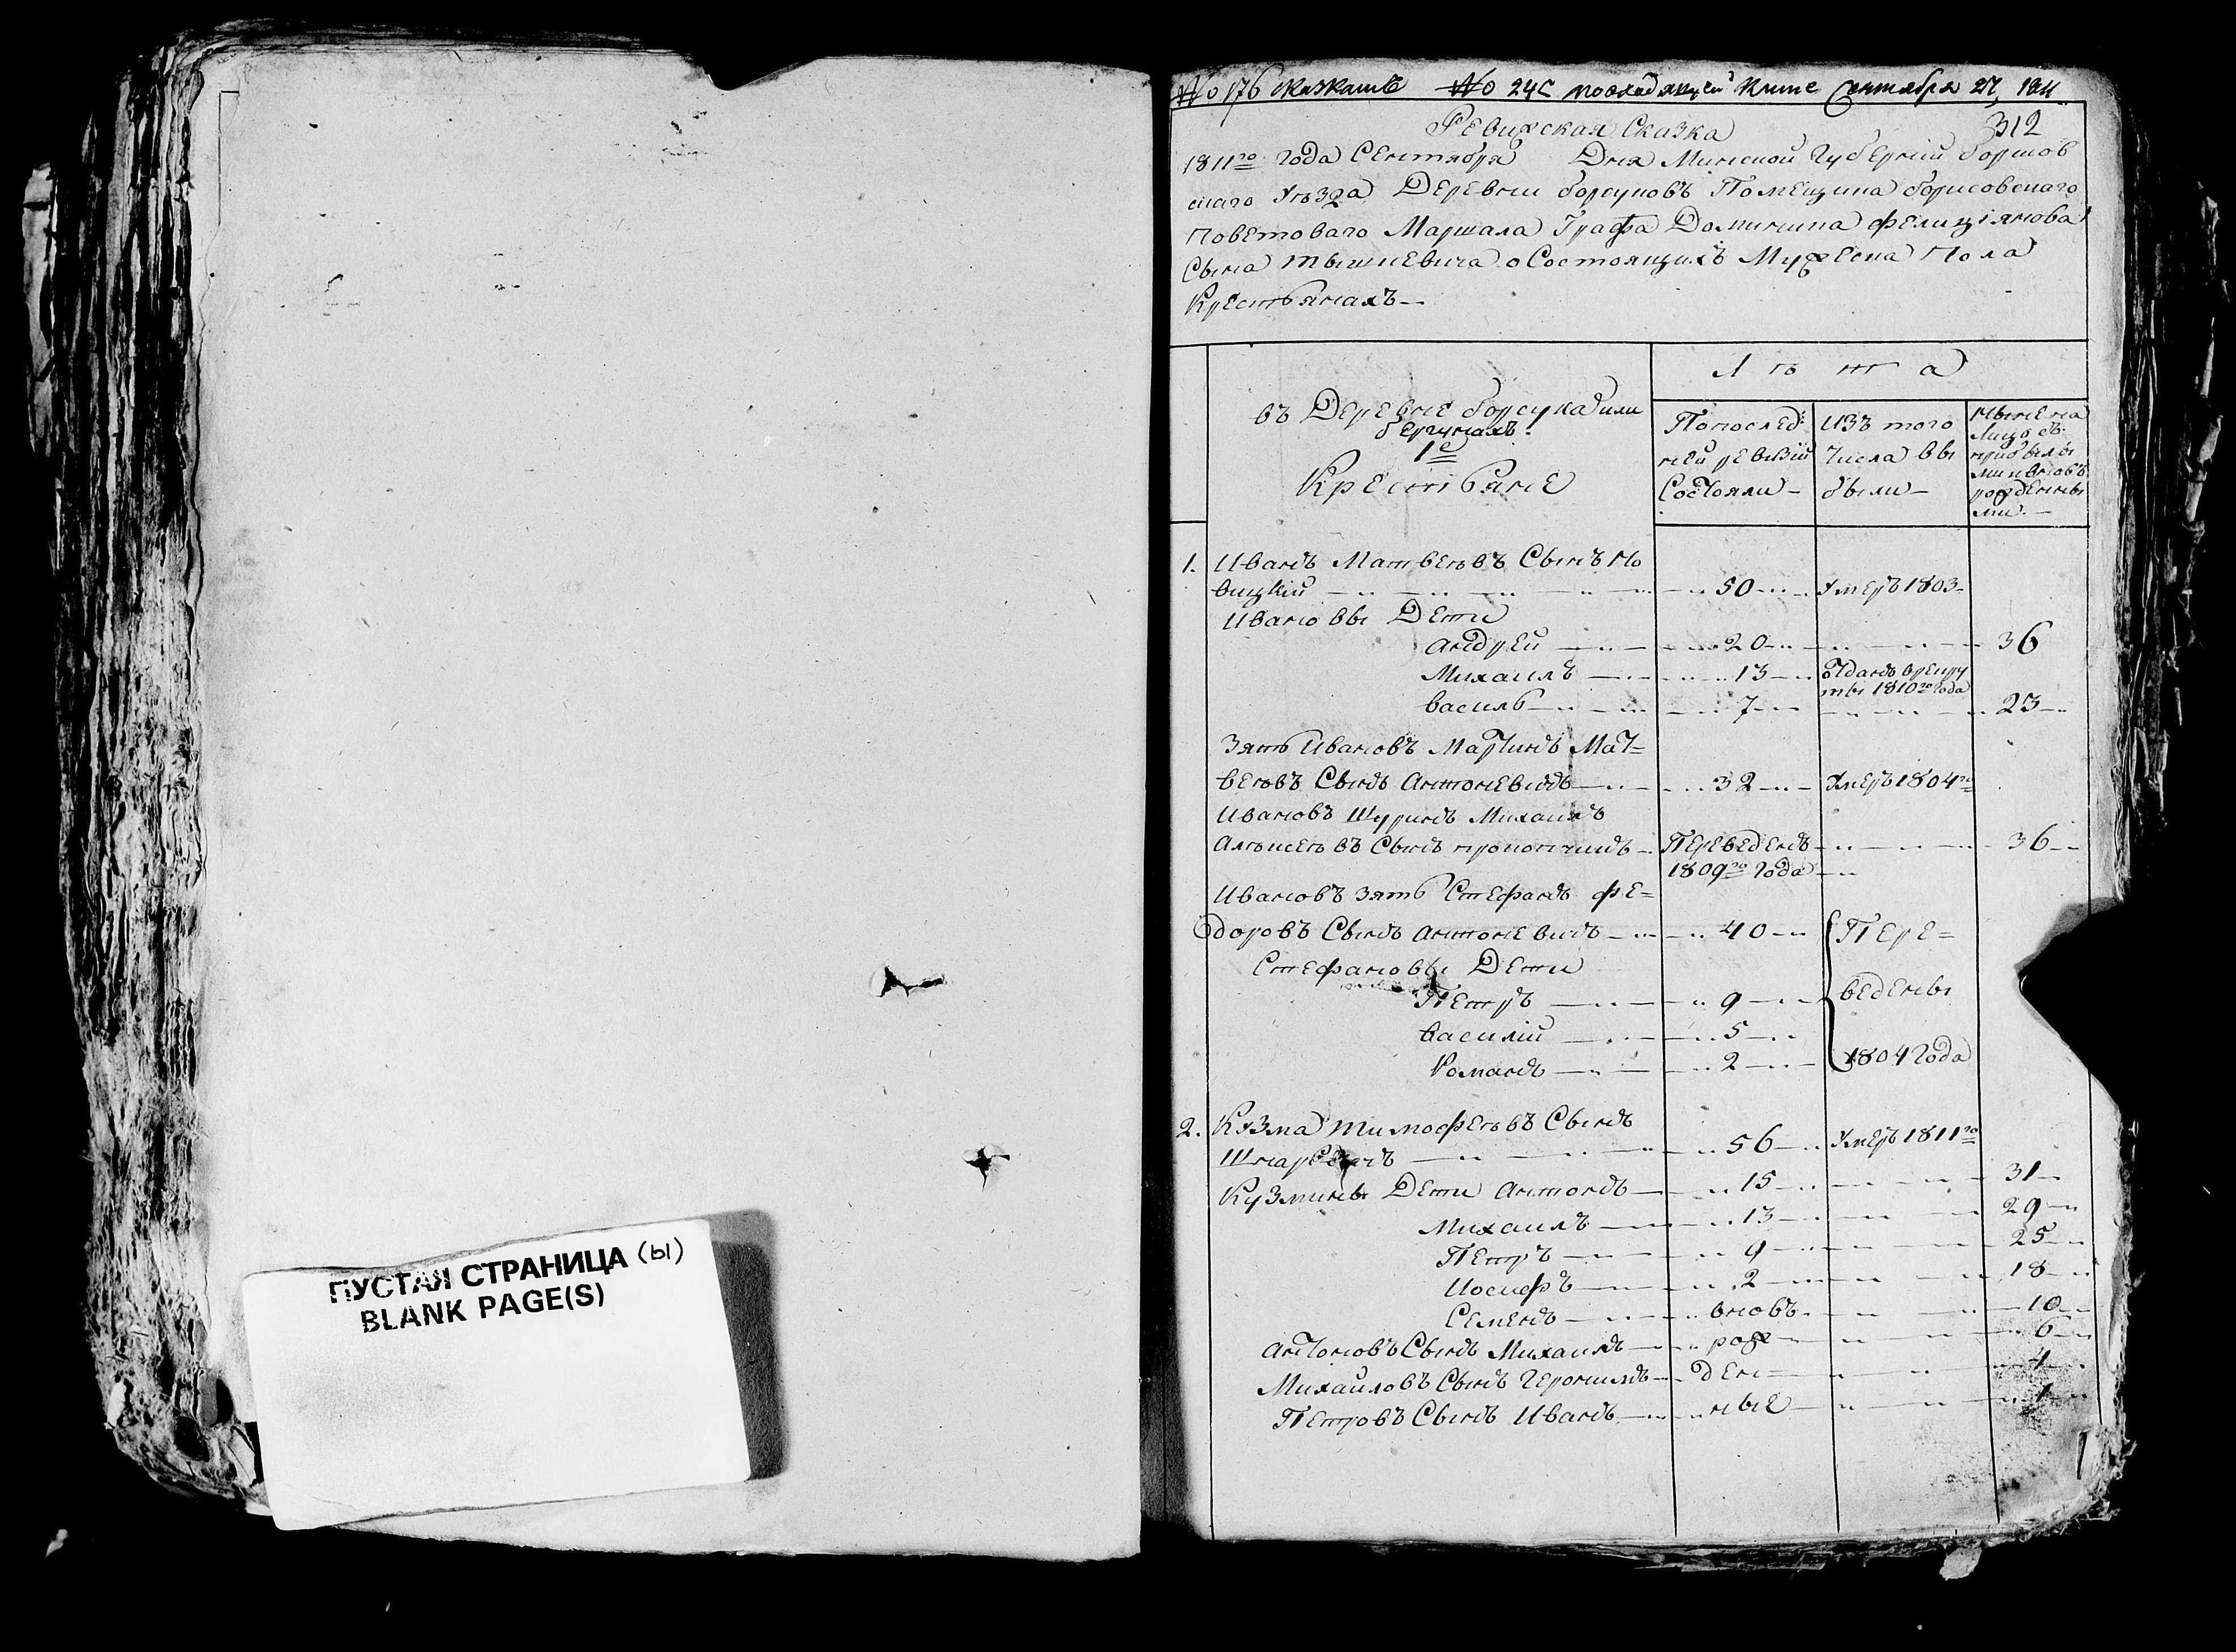 ПУСТАЯ СТРАНИЦА (ы)
BLANK PAGE(S)
№ 176 № 24 Сентября 27, 1811
312
Ревижская Сказка
1811го года Сентября Дня Минской Губернiи борисов
скаго Уѣзда Деревни борсуковъ Помещика борисовскаго
поветоваго Маршала Графа Доминика Фелицiянова
Сына тышкевича о Состоящихъ Мужеска Пола
Крестьянахъ
въ Деревне борсуках или
1е
Крестьяне
Лѣта
Попослед:
ней ревизiи
Состояли
изъ того
числа вы
были
ныне на
лицо съ
прибылы
ми и вновь
рожденны
ми
1. Иванъ Матвеевъ Сынъ Но
вицкiй 50 Умеръ 1803
Ивановы Дети
андрей 20 36
Михаилъ 13 отданъ врекру
ты 1810го года
василь 7 23
Зять Ивановъ Мартинъ Мат=
веевъ Сынъ Антоневичъ 32 Умеръ 1804го
Ивановъ Шуринъ Михаилъ
Алексеевъ Сынъ Переведенъ 36
1809го года
Ивановъ зять Стефанъ фе=
доровъ Сынъ антоневичъ 40 Пере=
Стефановы Дети
Петръ 9 ведены
василiй 5
Романъ 2 1804 года
2. Кузма тимофеевъ Сынъ
56 Умеръ 1811го
Кузмины Дети антонъ 15 31
Михаилъ 13 29
Петръ 9 25
Иосифъ 2 18
Семенъ вновь 10
антоновъ Сынъ Михаилъ рож 6
Михаиловъ Сынъ ден= 4
Петровъ Сынъ Иванъ ные 1